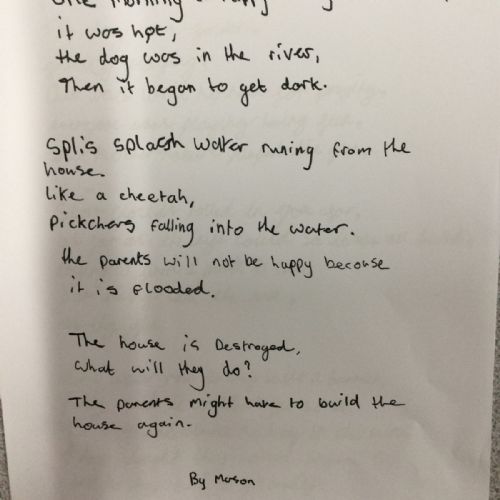 it was hot,
the dog was in the river,
Then it began to get dark.
Splis splach water runing from the
house.
like a cheetah,
Pickchers falling into the water.
the parents will not be happy becouse
it is flooded.
The house is Destroyed,
what will they do?
The parents might have to build the
house again.
By Mason